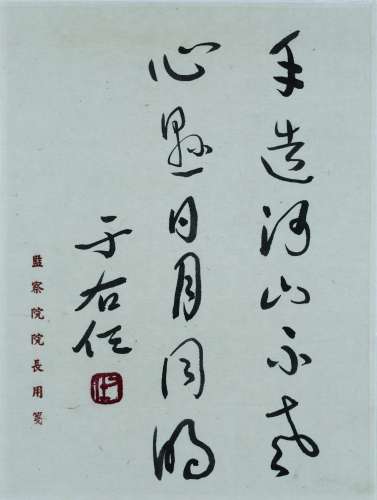 手造河山不老
心懸日月同明
于右任
監察院院長用箋